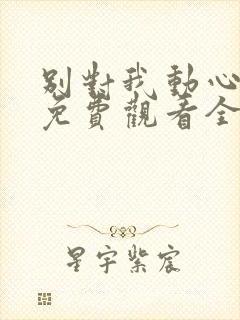 別對我動心
免費觀看全
星宇紫宸